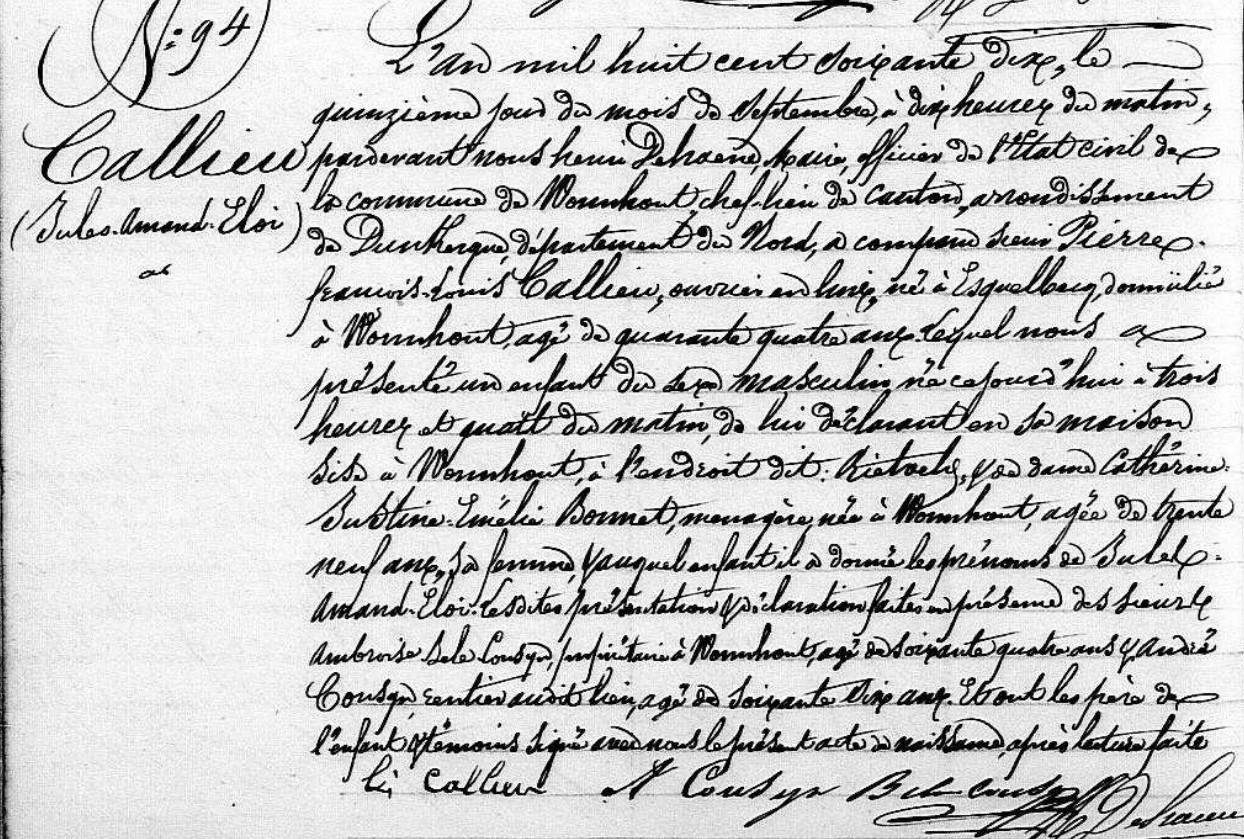 N°: 94
L'an mil huit cent soixante dix, le
quinzième jour du mois de Septembre, à dix heures du matin,
Callieu
pardevant nous henri Dehaene, Maire, officier de l'Etat civil de
la commune de Wormhout, chef-lieu de canton, arrondissement
(Jules-Amand-Eloi)
de Dunkerque, département du Nord, a comparu sieur Pierre
françois-Louis Callieu, ouvrier en lin, né à Esquelbecq, domicilié
à Wormhout, agé de quarante quatre ans. Lequel nous a
présenté un enfant du sexe masculin, né cejourd'hui à trois
heures et quart du matin, de lui déclarant en sa maison
sise à Wormhout, à l'endroit dit: Rietveld, & de dame Cathérine-
Justine-Emélie Bonnet, menagère, née à Wormhout, agée de trente
neuf ans, sa femme, & auquel enfant il a donné les prénoms de Jules-
Amand-Eloi. Lesdites présentation & déclaration faites en présence des sieurs
Ambroise Cousyn, propriétaire à Wormhout, agé de soixante quatre ans & André
Cousyn, rentier audit lieu, agé de soixante dix ans. Et ont les père de
l'enfant & témoins signé avec nous le présent acte de naissance, après lecture faite
Callieu A Cousyn Cousyn Dehaene